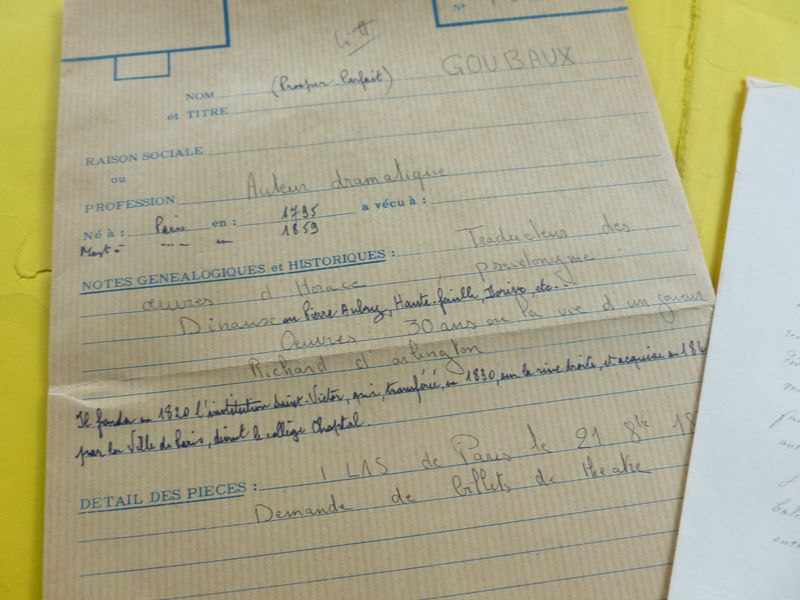 N°
Litt
NOM (Prosper Parfait) GOUBAUX
et TITRE
RAISON SOCIALE
ou
PROFESSION Auteur dramatique
Né à : Paris en : 1795 a vécu à :
Mort à " " 1859
NOTES GENEALOGIQUES et HISTORIQUES : Traducteur des
œuvres d'Horace pseudonyme
Dinaux ou Pierre Aubry, Haute-feuille, etc...
Oeuvres 30 ans ou la vie d'un joueur
Richard d'arlington
Il fonda en 1820 l'institution Saint-Victor, qui, transférée, en 1830, sur la rive droite, et acquise en 184
par la Ville de Paris, devint le collège Chaptal.
DETAIL DES PIECES : 1 LAS de Paris le 21 8bre 18
Demande de billets de theatre